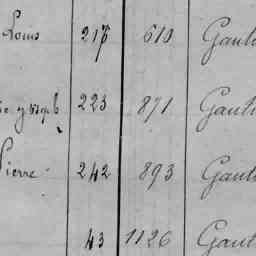 Louis 217 610 Gauti
223 871 Gauti
Pierre 242 893 Gauti
43 1126 Gauti